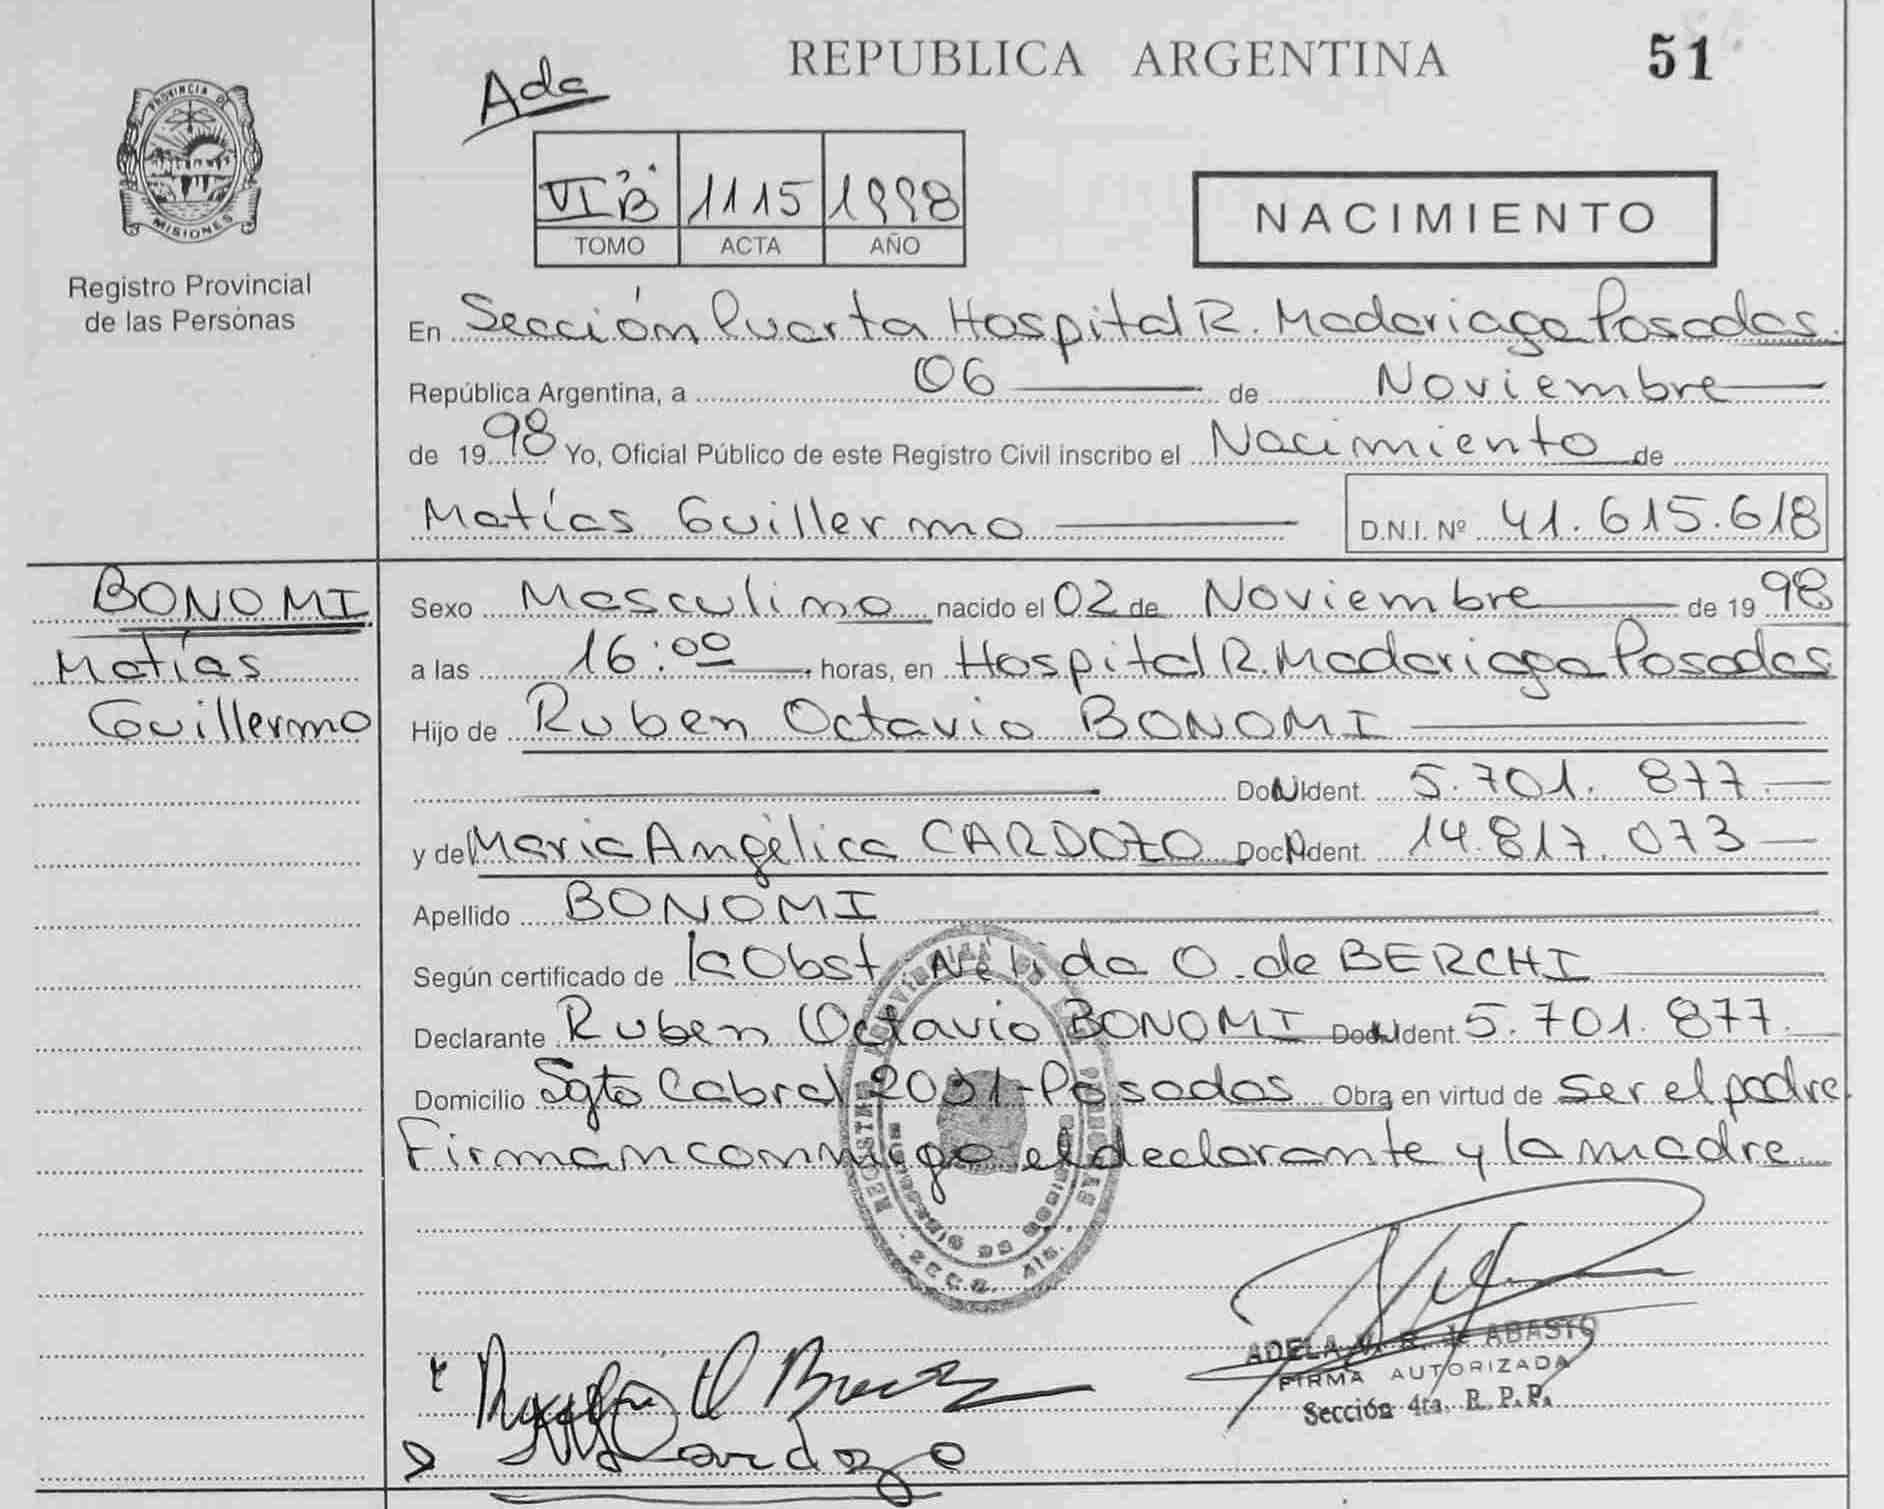 REPUBLICA ARGENTINA
51
Ada
PROVINCIA DE
MISIONES
Registro Provincial
de las Personas
VI "B" 1115 1998
TOMO ACTA AÑO
NACIMIENTO
En Sección Cuarta Hospital R. Madariaga Posadas.
República Argentina, a 06 de Noviembre
de 1998 Yo, Oficial Público de este Registro Civil inscribo el Nacimiento de
Matías Guillermo D.N.I. Nº 41.615.618
BONOMI
Matías
Guillermo
Sexo Masculino nacido el 02 de Noviembre de 1998
a las 16:00 horas, en Hospital R. Madariaga Posadas
Hijo de Ruben Octavio BONOMI
Doc. Ident. 5.701.877.
y de Maria Angélica CARDOZO Doc. Ident. 14.817.073
Apellido BONOMI
Según certificado de la Obst. Nélida O. de BERCHI
Declarante Ruben Octavio BONOMI Doc. Ident. 5.701.877.
Domicilio Sgto Cabral 2031-Posadas Obra en virtud de ser el padre.
Firman conmigo el declarante y la madre.
ADELA V. R. de ABASTO
FIRMA AUTORIZADA
Sección 4ta. R. P. P.
Cardozo